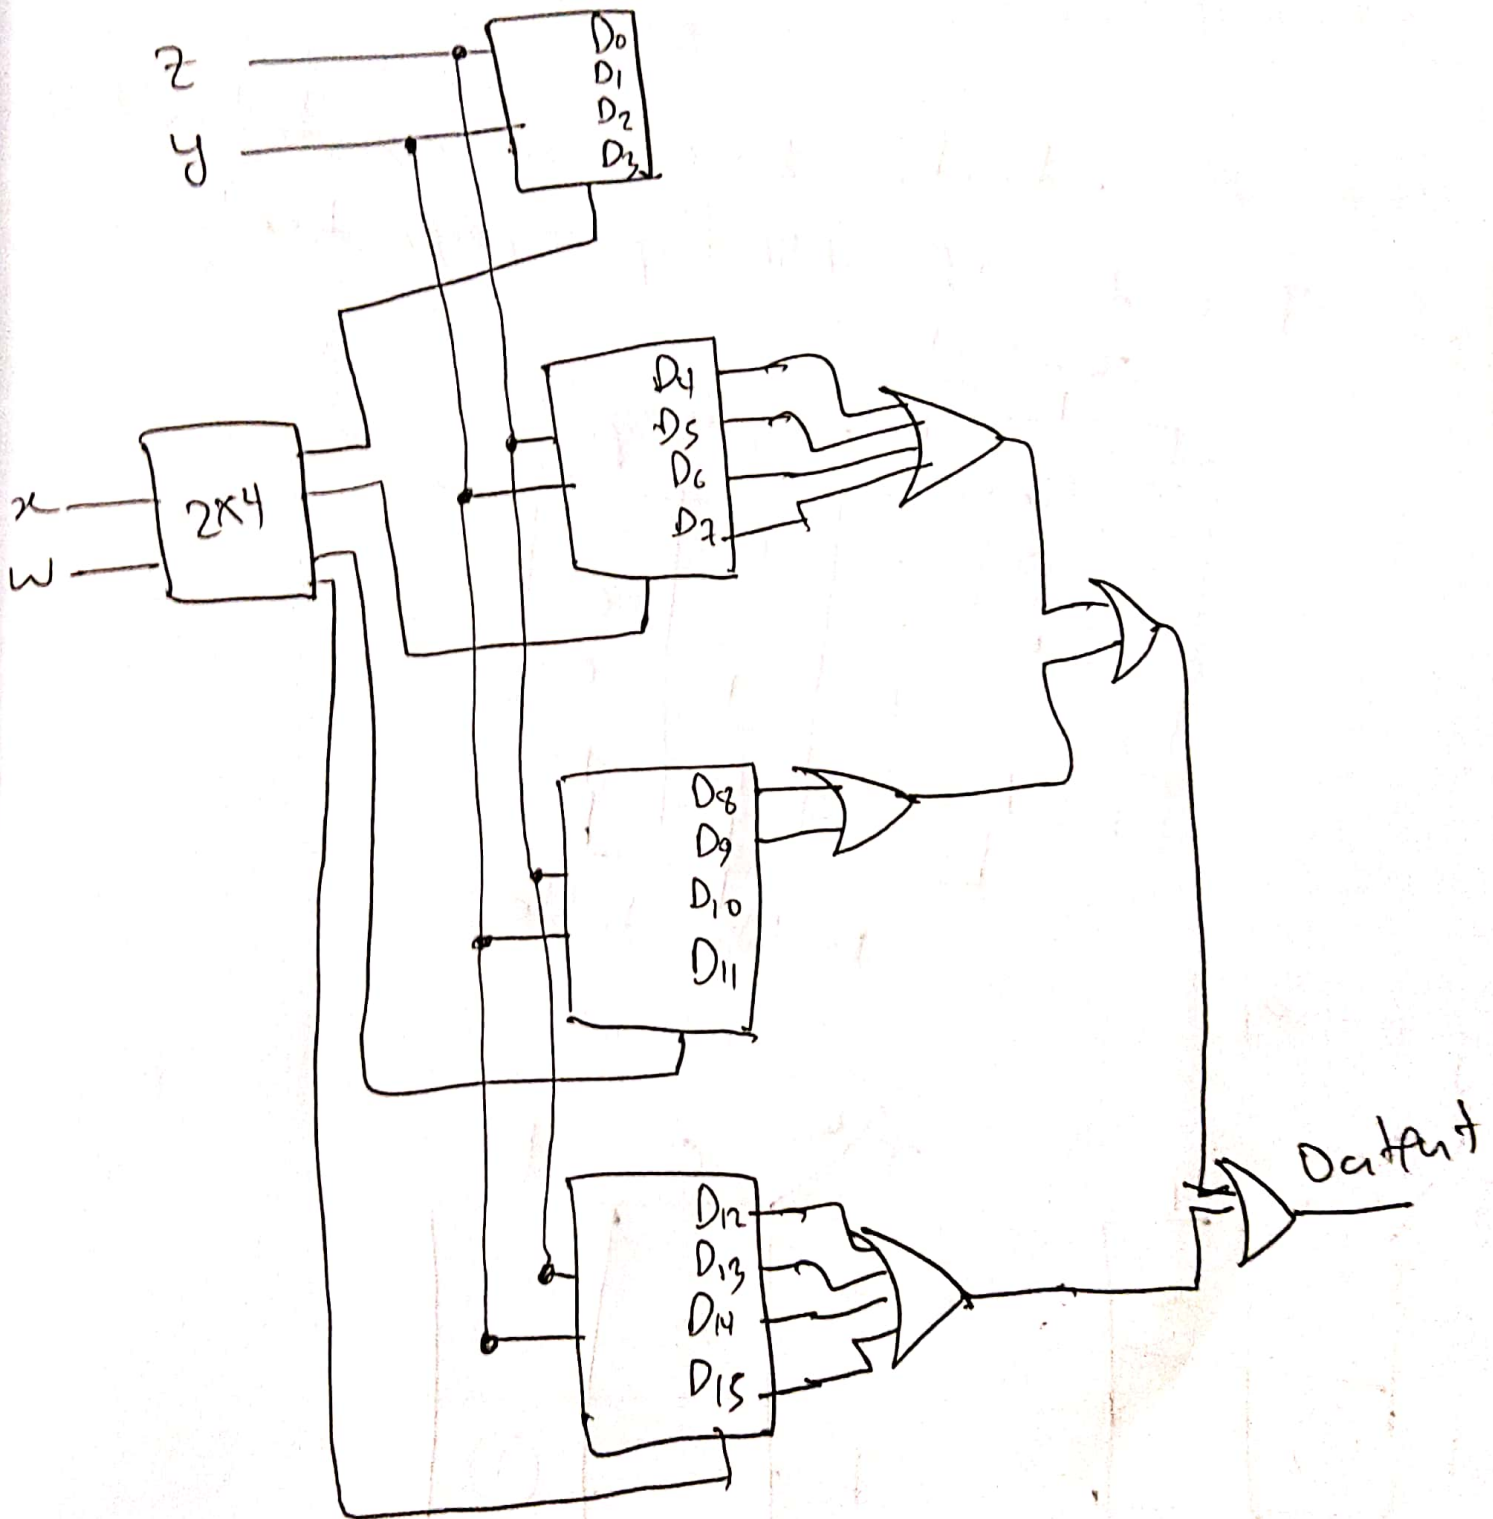 Z
y
D0
D1
D2
D3
x
w
2x4
D4
D5
D6
D7
D8
D9
D10
D11
D12
D13
D14
D15
Output